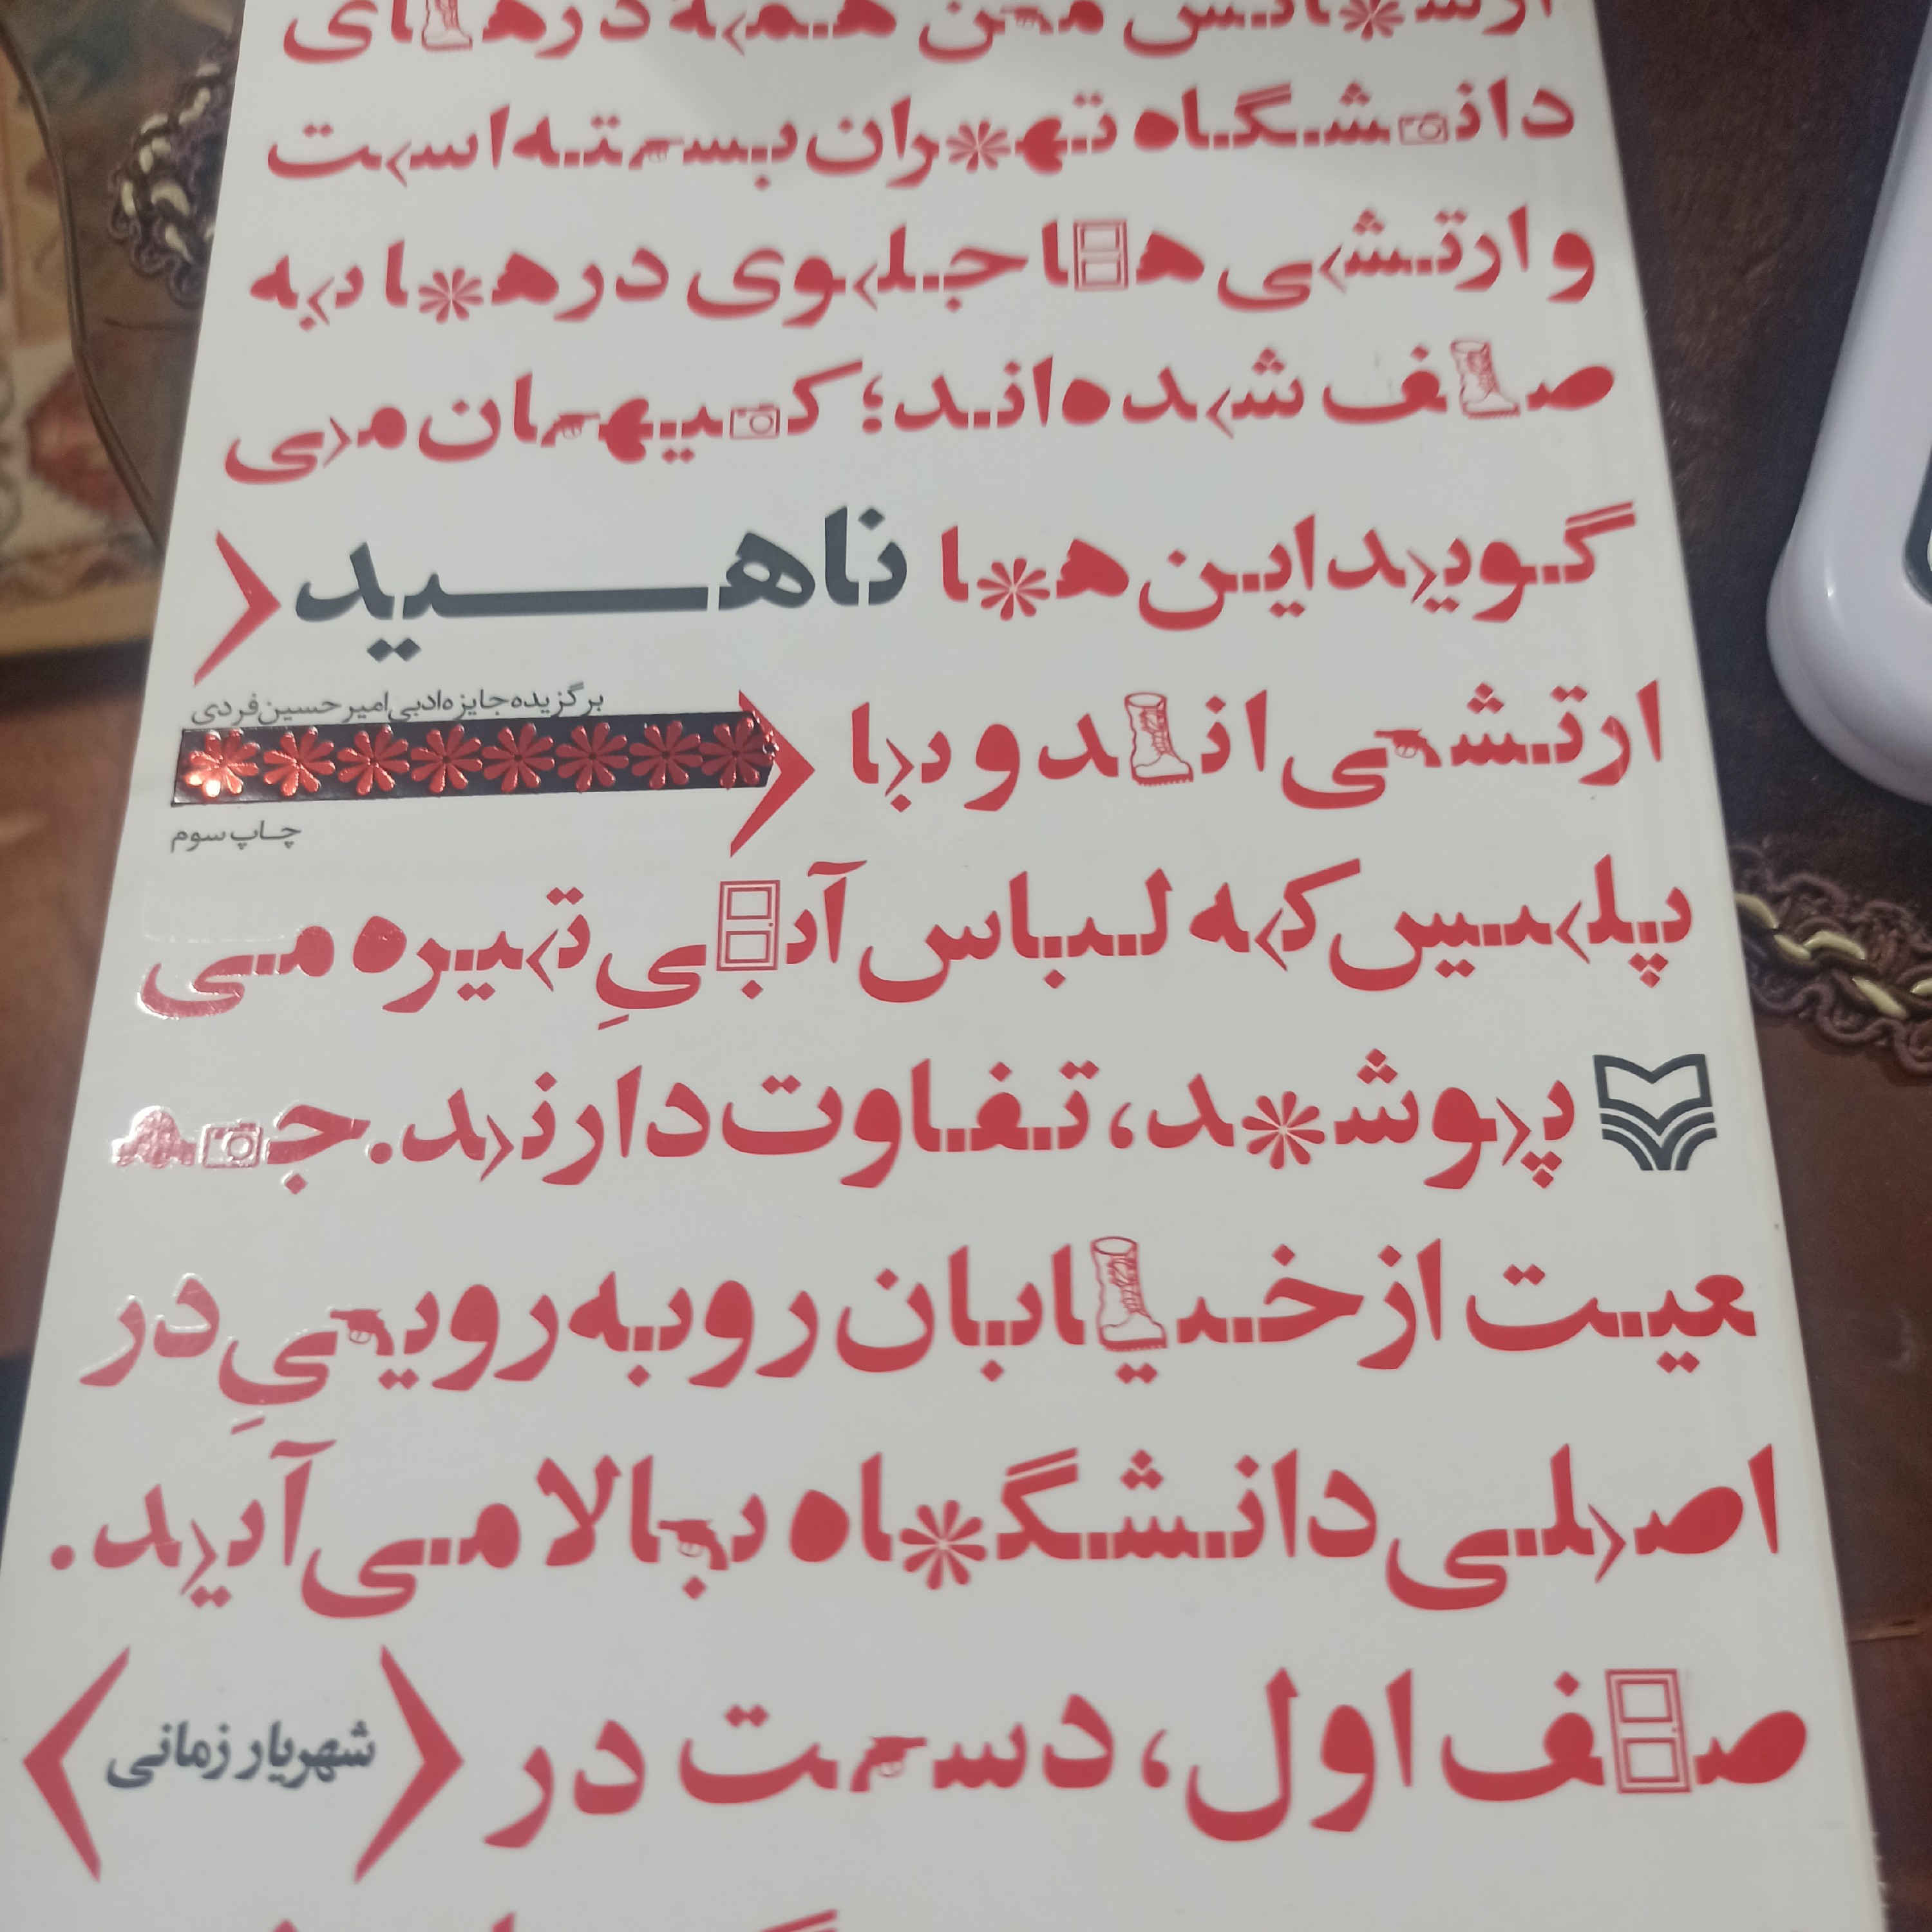 من همه درهای
دانشگاه تهران بسته است
و ارتشی ها جلوی درها به
صف شده اند؛ کیهان می
گوید این ها ناهید
برگزیده جایزه ادبی امیرحسین فردی
ارتشی اند و با
چاپ سوم
پلیس که لباس آبیِ تیره می
پوشد، تفاوت دارند. جم
عیت از خیابان روبه روییِ در
اصلی دانشگاه بالا می آید.
صف اول، دست در
شهریار زمانی